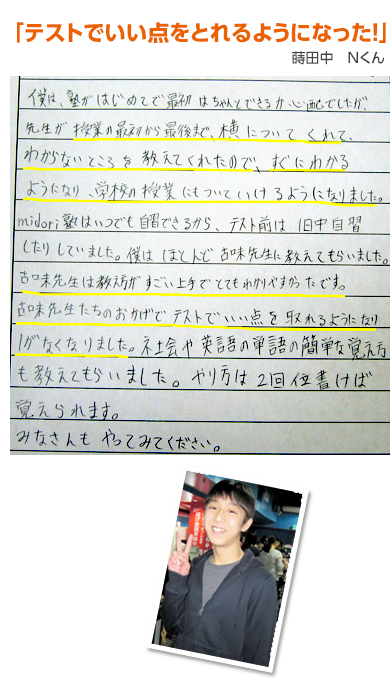 「テストでいい点をとれるようになった!」
蒔田中　Nくん
僕は、塾がはじめてで最初はちゃんとできるか心配でしたが、
先生が授業の最初から最後まで、横についてくれて、
わからないところを教えてくれたので、すぐにわかる
ようになり、学校の授業にもついていけるようになりました。
midori塾はいつでも自習できるから、テスト前は1日中自習
したりしていました。僕はほとんど古味先生に教えてもらいました。
古味先生は教え方がすごい上手でとてもわかりやすかったです。
古味先生たちのおかげでテストでいい点を取れるようになり
1がなくなりました。社会や英語の単語の簡単な覚え方
も教えてもらいました。やり方は2回位書けば
覚えられます。
みなさんもやってみてください。